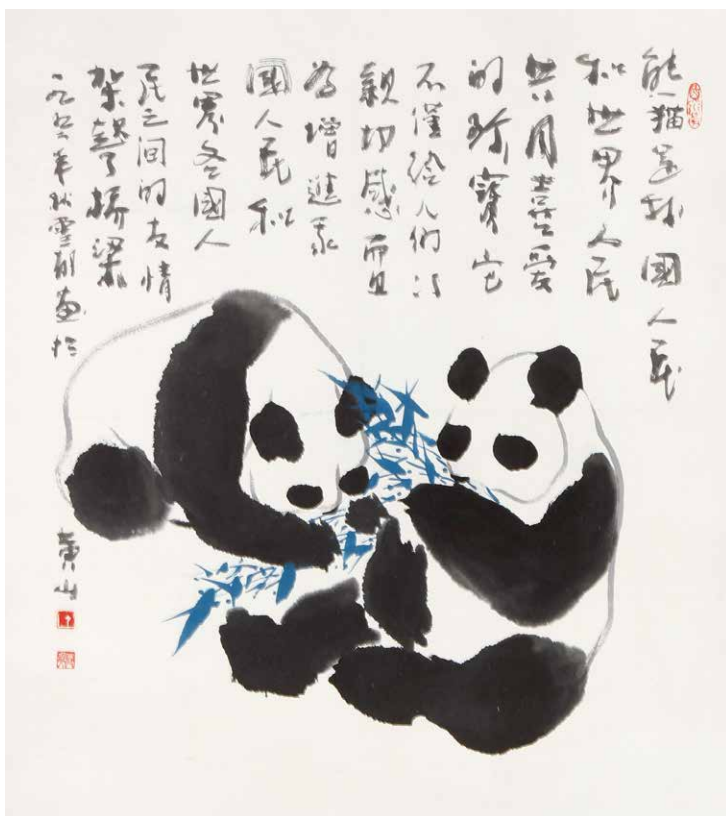 熊猫是我國人民
和世界人民
共同喜爱
的珍寶它
不僅给人们以
親切感而且
為增進我
國人民和
世界各國人
民之间的友情
架起了橋梁
年秋画於
黄山